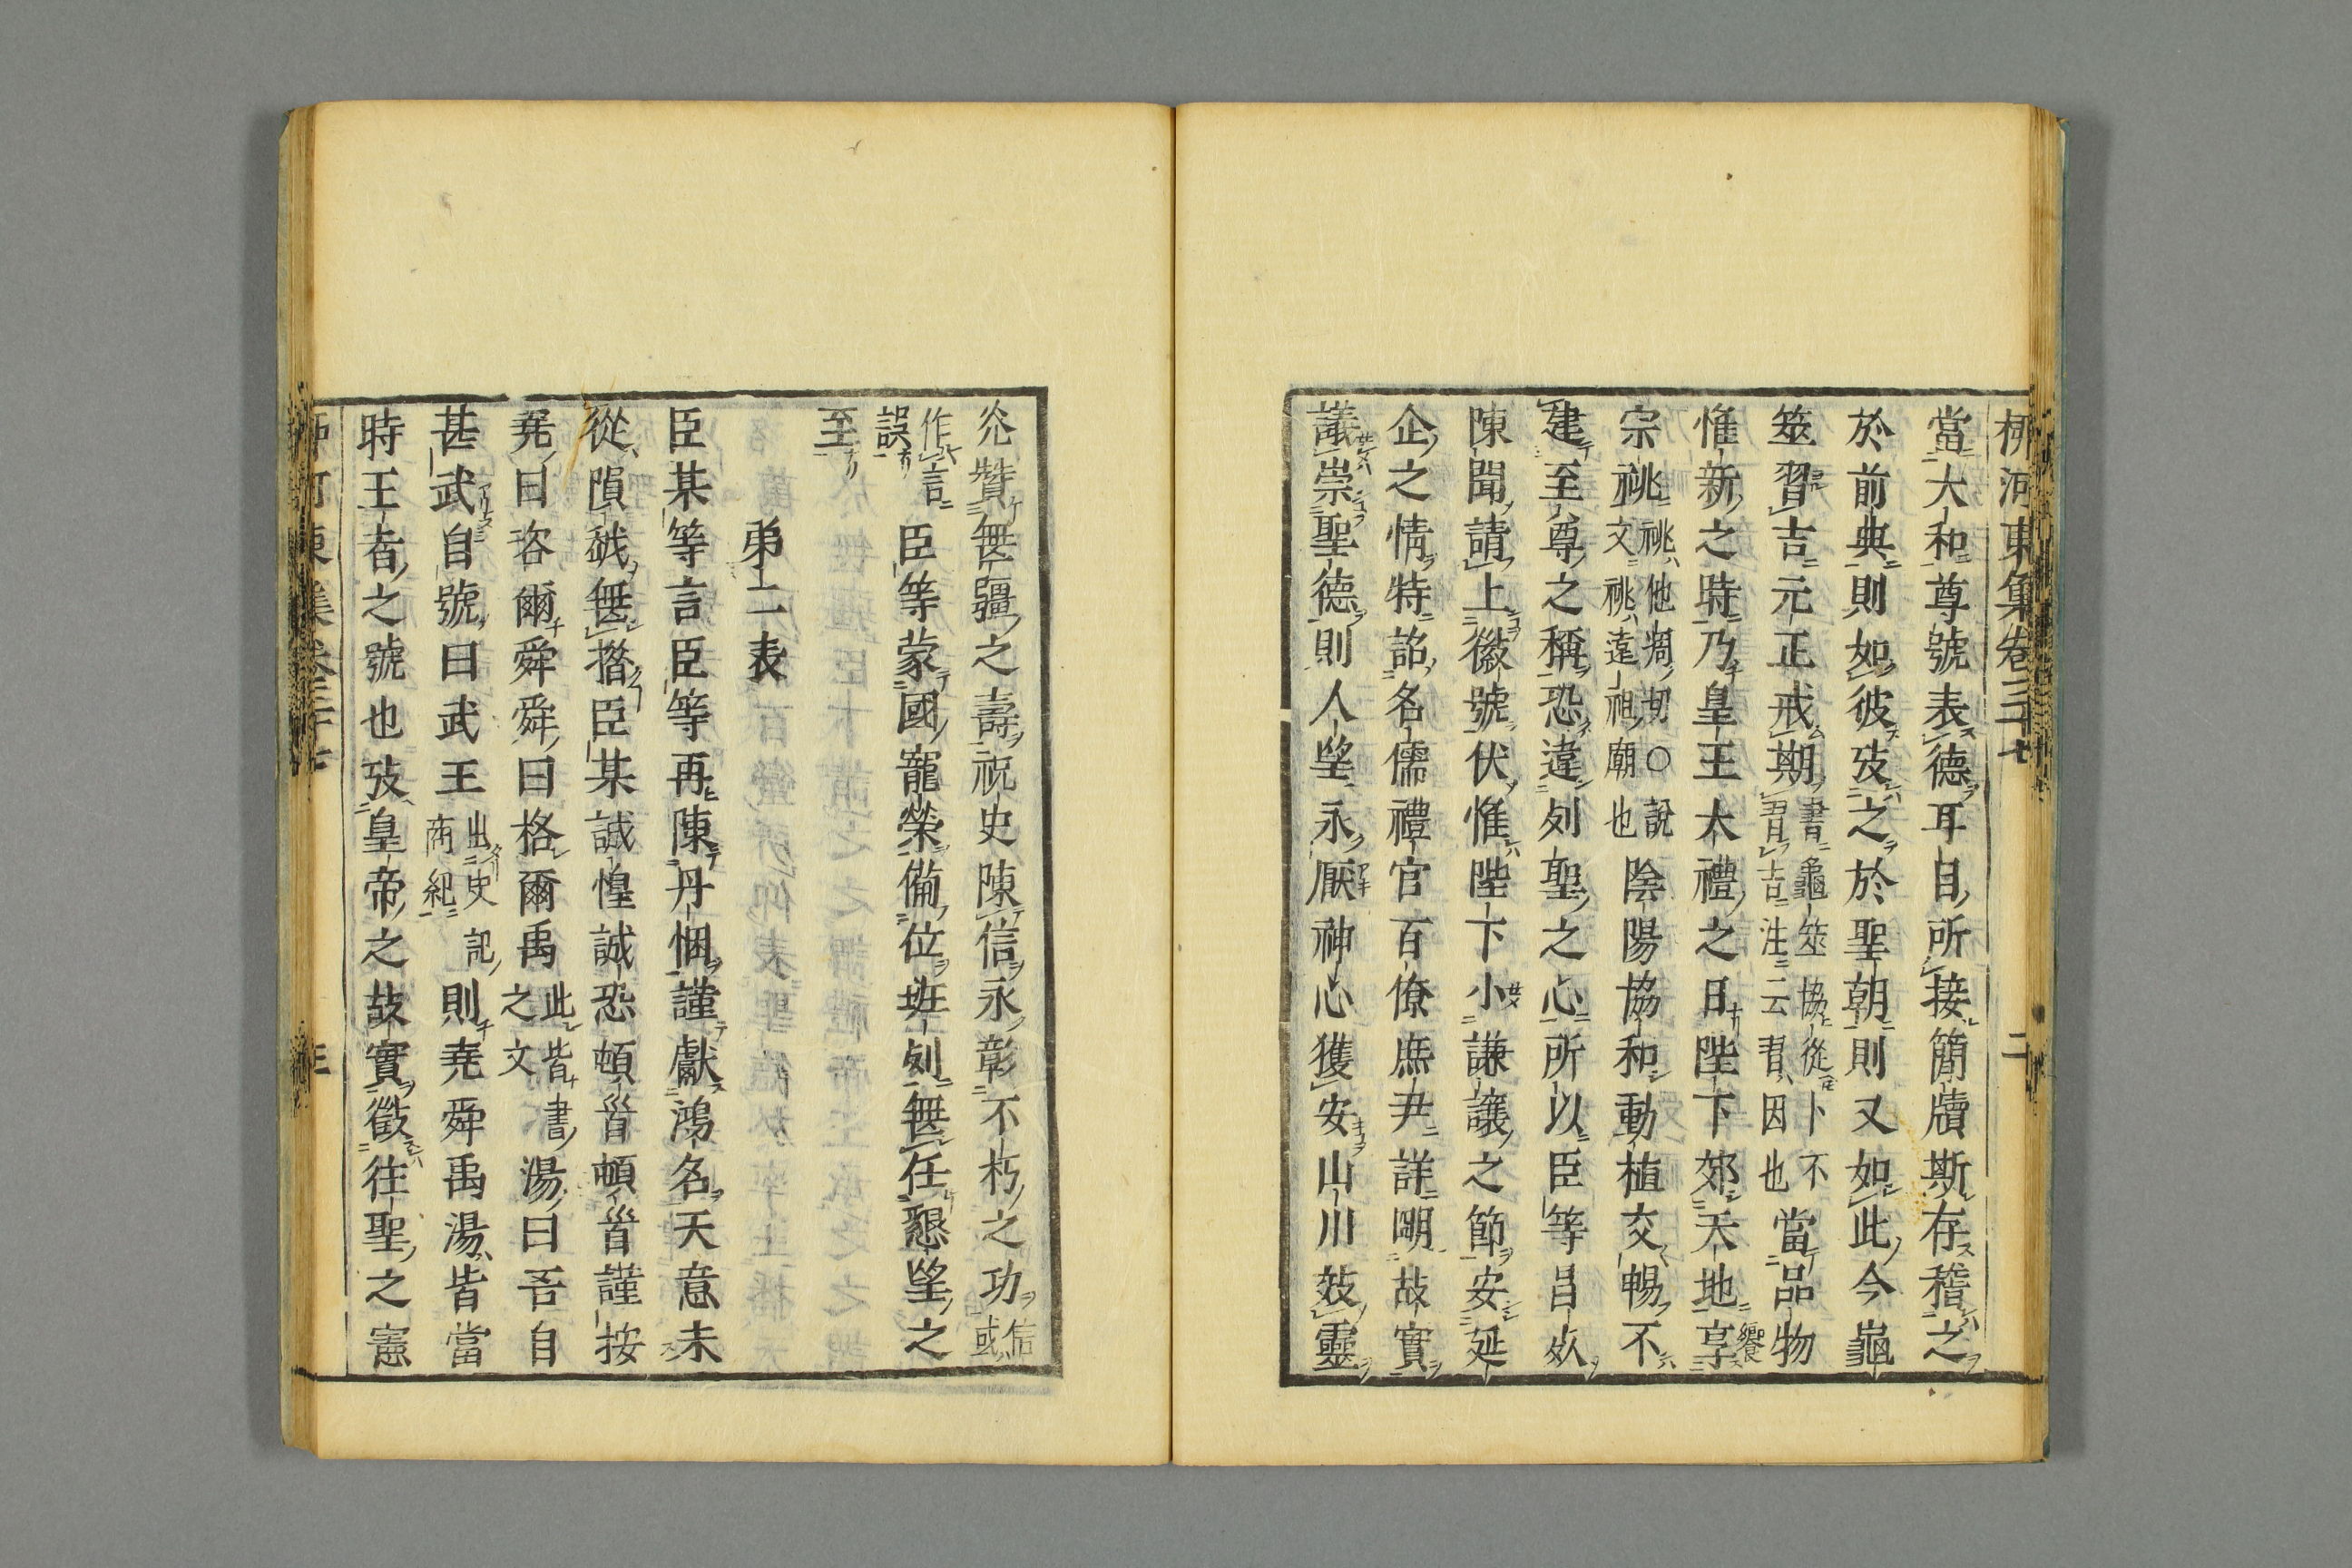 柳河東集卷三十七 二
當大和尊號表德耳目所接簡牘斯存稽之
於前典則如彼攷之於聖朝則又如此今龜
筮習吉元正戒期書龜筮協從卜不習吉注云習因也當品物
惟新之時乃皇王大禮之日陛下郊天地享
宗祧祧他凋切○說文祧遠祖廟也陰陽協和動植交暢不
建至尊之稱恐違列聖之心所以臣等昌死
陳聞請上徽號伏惟陛下小謙讓之節安延
企之情特詔名儒禮官百僚庶尹詳明故實
議崇聖德則人望永厭神心獲安山川效靈
光贊無疆之壽祝史陳信永彰不朽之功信或
作言誤臣等蒙國寵榮備位班列無任懇望之
至
弟二表
臣某等言臣等再陳丹悃謹獻鴻名天意未
從隕越無措臣某誠惶誠恐頓首頓首謹按
堯曰咨爾舜舜曰格爾禹此皆書之文湯曰吾自
甚武自號曰武王出史記商紀則堯舜禹湯皆當
時王者之號也攷皇帝之故實徵往聖之憲
三